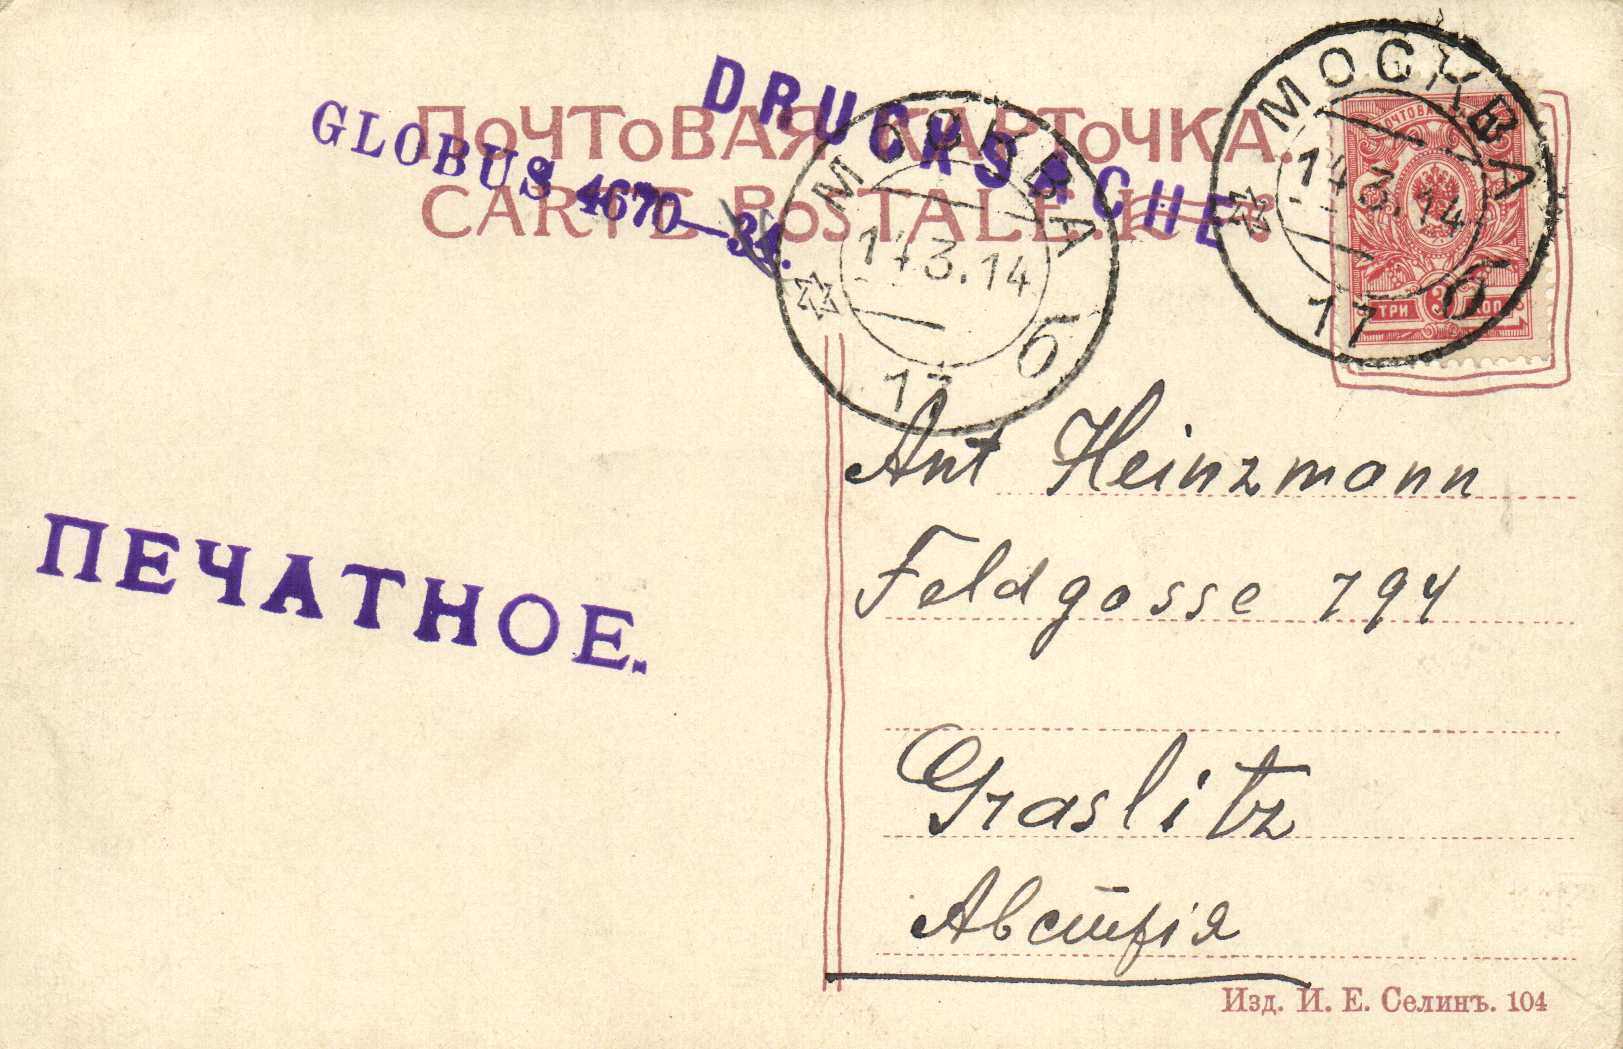 DRUCKSACHE
GLOBUS 4670—34.
ПОЧТОВАЯ КАРТОЧКА.
CARTE POSTALE.
МОСКВА
14.3.14
17
б
МОСКВА
14.3.14
17
б
ПОЧТОВАЯ
ТРИ 3 КОП.
ПЕЧАТНОЕ.
Ant Heinzmann
Feldgasse 794
Graslitz
Австрія
Изд. И. Е. Селинъ. 104